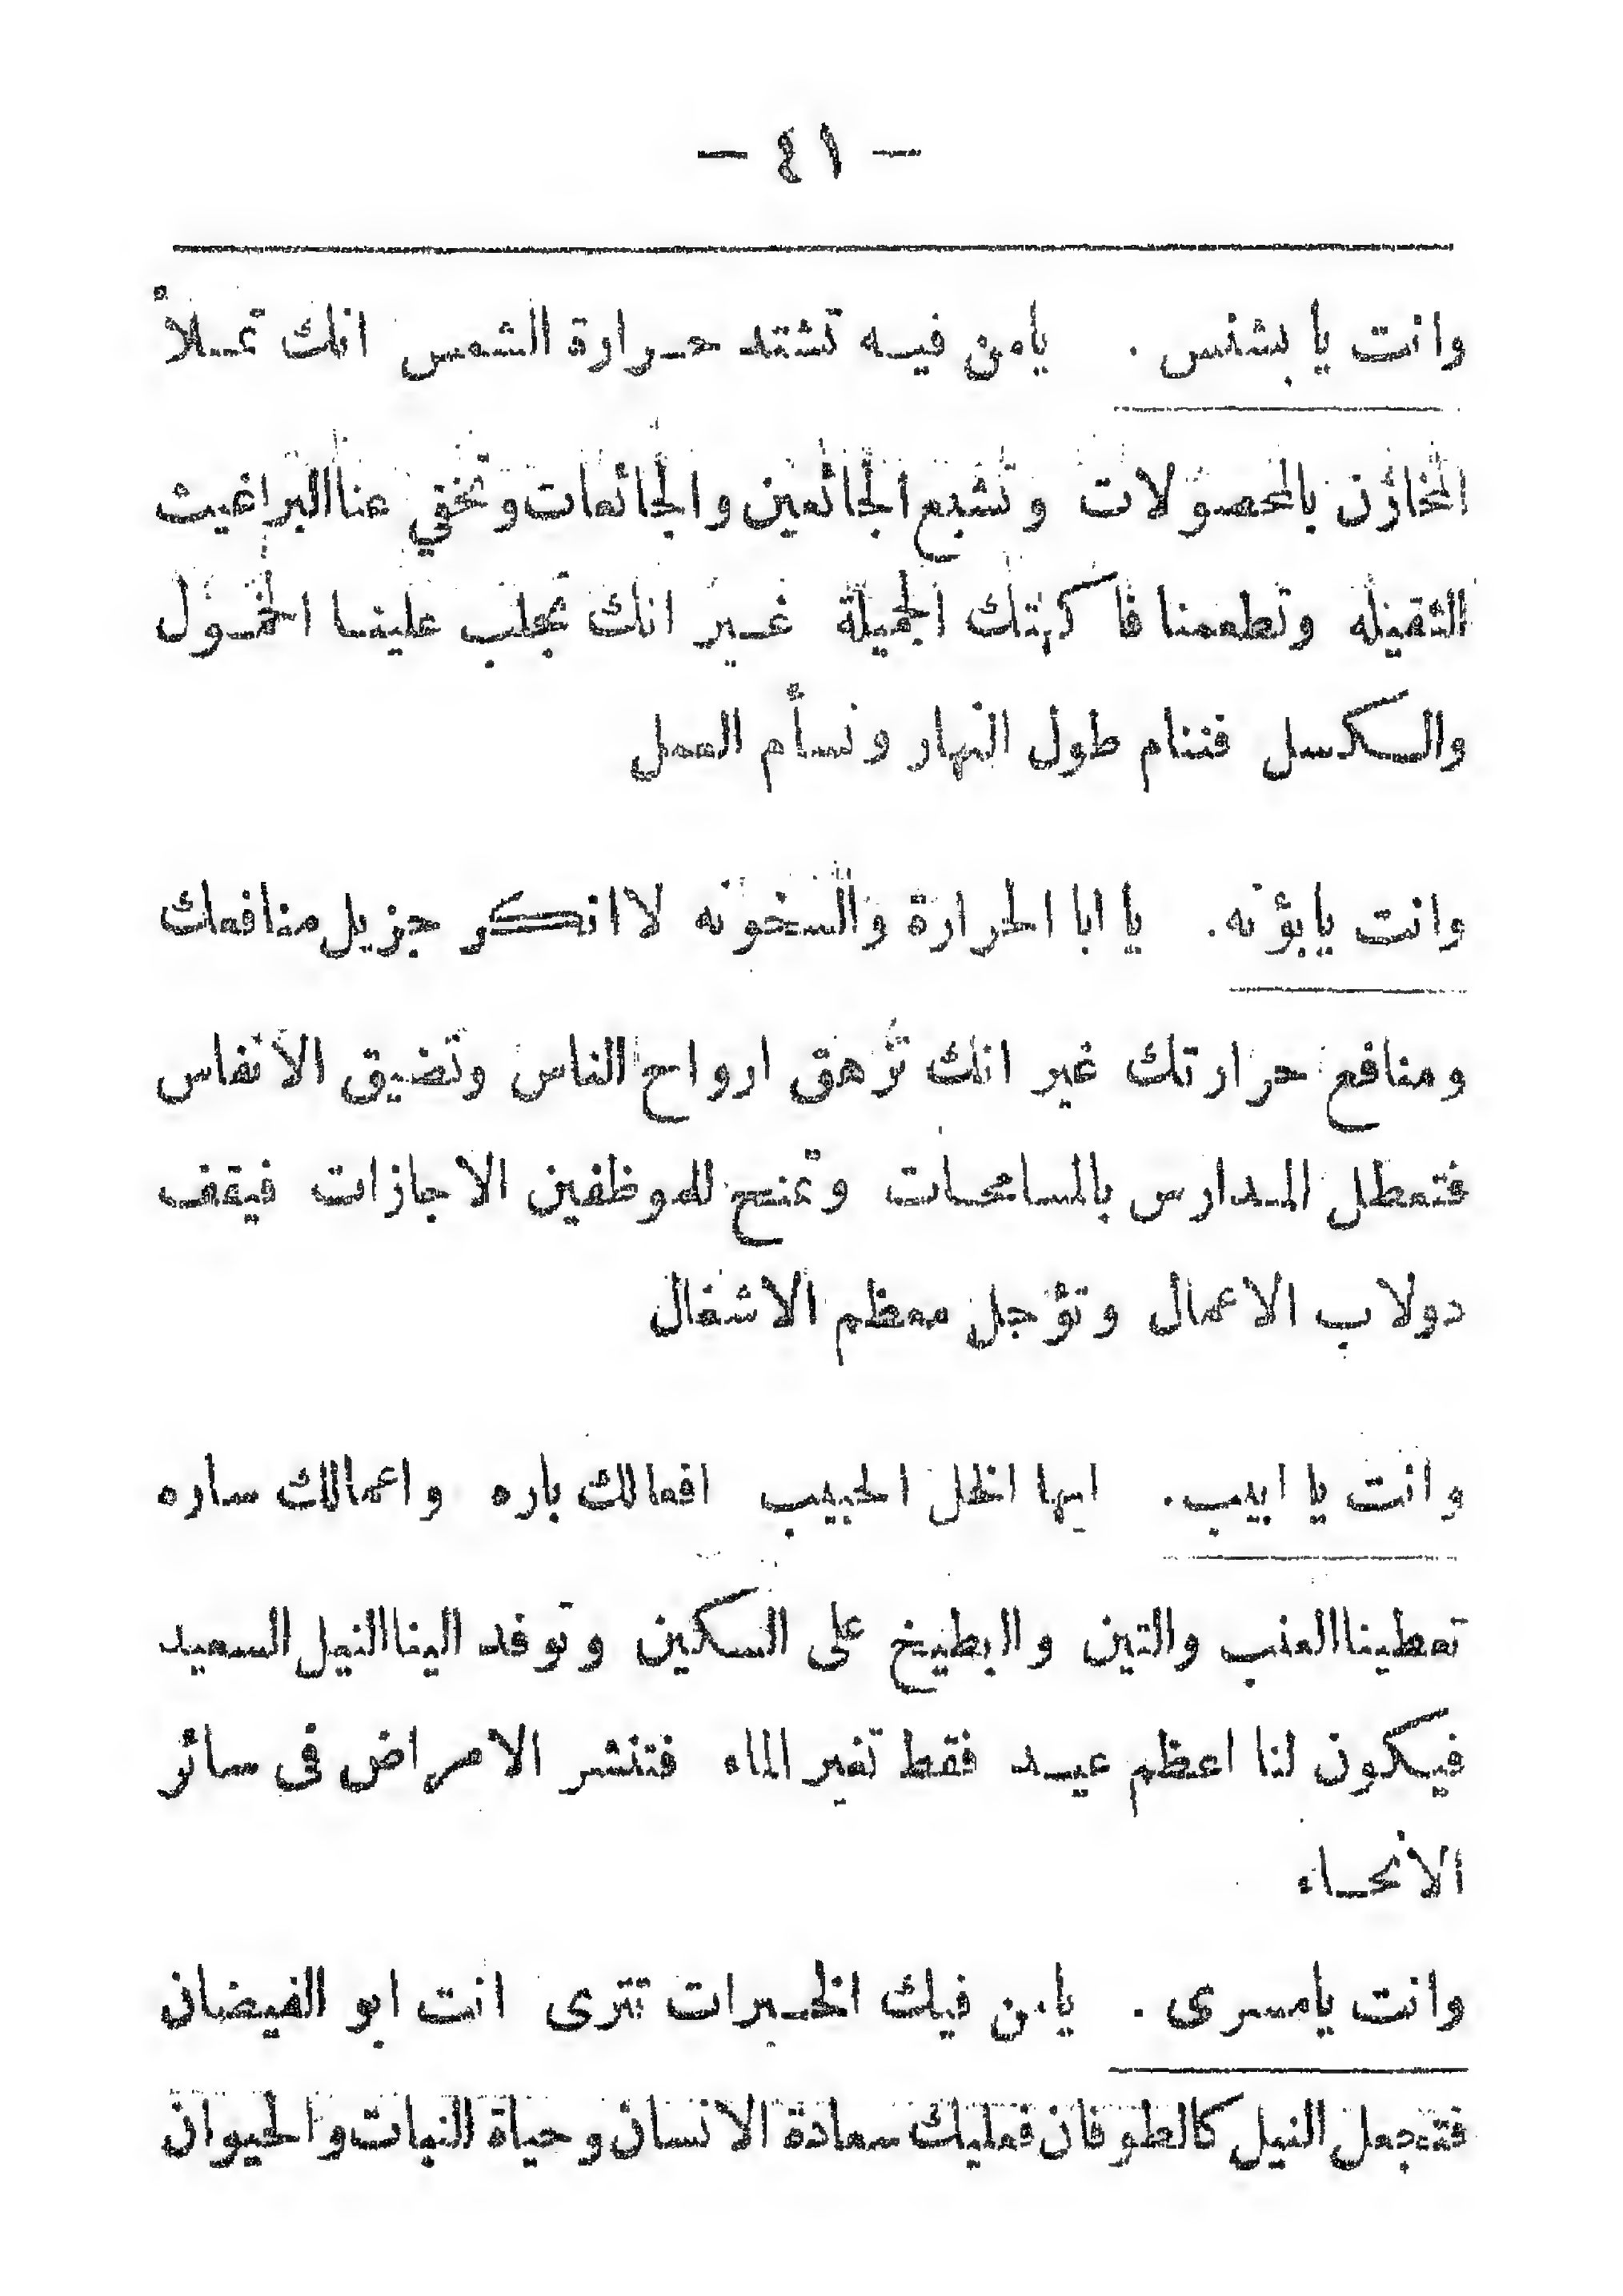 — ٤١ —
وانت يا بشنس . يامن فيه تشتد حرارة الشمس انك تملأ
المخازن بالمحصولات وتشبع الجائعين والجائعات وتخفي عنا البراغيث
الثقيله وتطعمنا فاكهتك الجميلة غير انك تجلب علينا الخمول
والكسل فننام طول النهار ونسأم العمل
وانت يابؤنه . يا ابا الحرارة والسخونه لا انكر جزيل منافعك
ومنافع حرارتك غير انك تزهق ارواح الناس وتضيق الانفاس
فتعطل المدارس بالمسامحات وتمنح للموظفين الاجازات فيقف
دولاب الاعمال وتؤجل معظم الاشغال
وانت يا ابيب . ايها الخل الحبيب افعالك باره واعمالك ساره
تعطينا العنب والتين والبطيخ على السكين وتوفد الينا النيل السعيد
فيكون لنا اعظم عيد فقط تغير الماء فتنشر الامراض فى سائر
الانحاء
وانت يامسرى . يامن فيك الخيرات تترى انت ابو الفيضان
فتجعل النيل كالطوفان فعليك سعادة الانسان وحياة النبات والحيوان